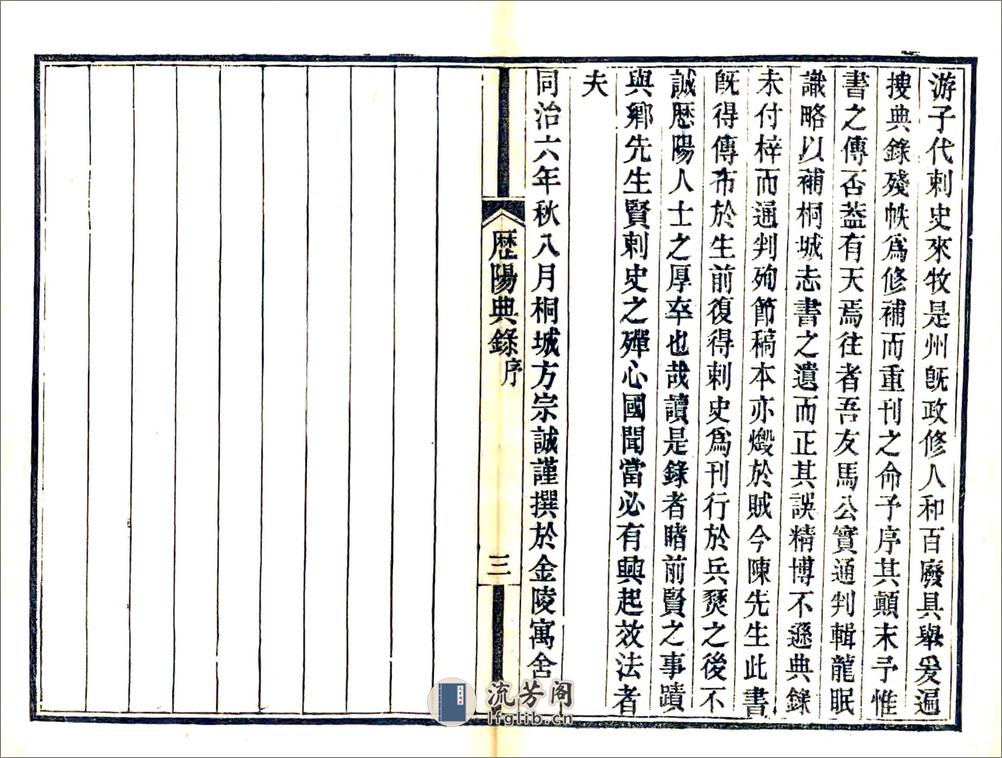 游子代刺史來牧是州旣政修人和百廢具舉爰遍
搜典錄殘帙爲修補而重刊之命予序其顛末予惟
書之傳否葢有天焉往者吾友馬公實通判輯龍眠
識略以補桐城志書之遺而正其誤精博不遜典錄
未付梓而通判殉節稿本亦燬於賊今陳先生此書
旣得傳布於生前復得刺史爲刊行於兵燹之後不
誠歷陽人士之厚幸也哉讀是錄者睹前賢之事蹟
與鄉先生賢刺史之殫心國聞當必有興起效法者
夫
同治六年秋八月桐城方宗誠謹撰於金陵寓舍
歷陽典錄 序
三
流芳阁
lfglib.cn